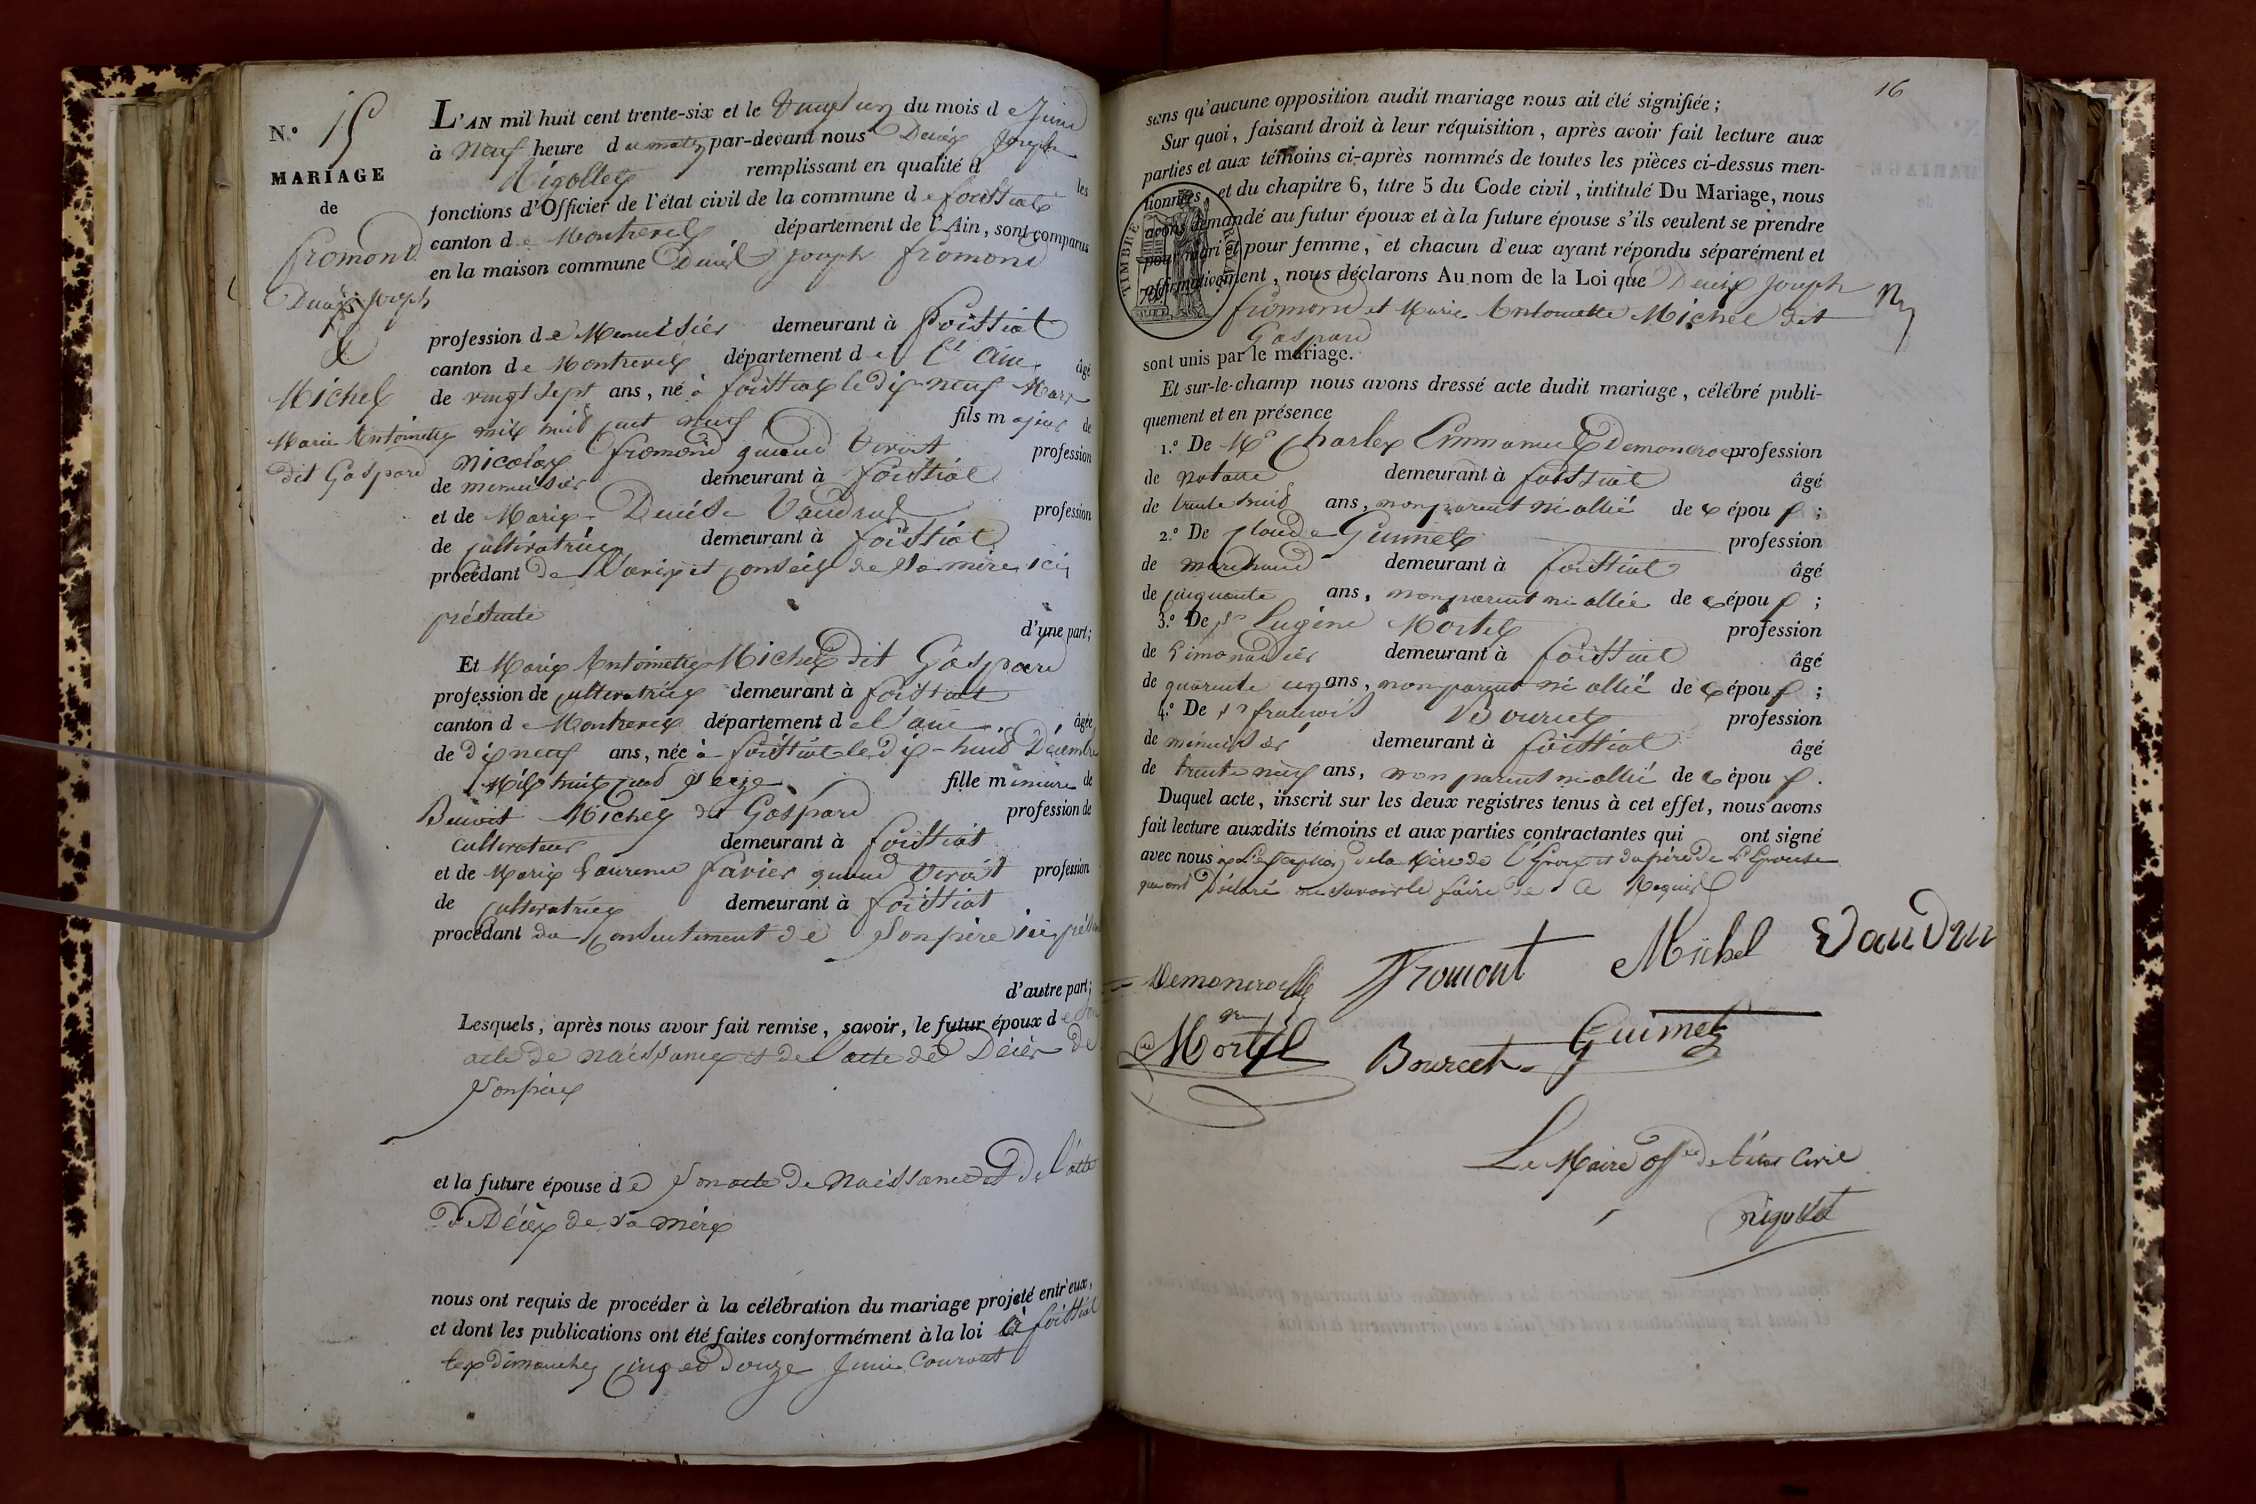 N.° 15
MARIAGE
de
fromond
Denis Joseph
&
Michel
Marie Antoinette
dit Gaspard
L'AN mil huit cent trente-six et le Vingt un du mois de Juin
à Neuf heure du matin par-devant nous Denis Joseph
Rigollet remplissant en qualité d les
fonctions d'Officier de l'état civil de la commune de foissiat
canton de Montrevel département de l'Ain, sont comparus
en la maison commune Denis Joseph fromond
profession de Menuisier demeurant à foissiat
canton de Montrevel département de l'Ain âgé
de vingt sept ans, né à foissiat le dix-neuf Mars
mil huit cent neuf fils majeur de
Nicolas fromond quand vivait profession
de menuisier demeurant à foissiat
et de Marie Denise Vaudrus profession
de cultivatrice demeurant à foissiat
procédant de l'avis et conseil de sa mère ici
présente
d'une part;
Et Marie Antoinette Michel dit Gaspard
profession de cultivatrice demeurant à foissiat
canton de Montrevel département de l'ain âgée
de dix neuf ans, née à foissiat le dix-huit Décembre
Mil huit cent seize fille mineure de
Benoit Michel dit Gaspard profession de
cultivateur demeurant à foissiat
et de Marie Laurence favier quand vivait profession
de cultivatrice demeurant à foissiat
procédant du consentement de son père ici présent
d'autre part;
Lesquels, après nous avoir fait remise, savoir, le futur époux de son
acte de naissance et de l'acte de Décès de
son père
et la future épouse de son acte de Naissance et de l'acte
de Décès de sa mère
nous ont requis de procéder à la célébration du mariage projeté entr'eux,
et dont les publications ont été faites conformément à la loi à foissiat
les dimanches cinq et douze Juin Courant
16
sans qu'aucune opposition audit mariage nous ait été signifiée;
Sur quoi, faisant droit à leur réquisition, après avoir fait lecture aux
parties et aux témoins ci-après nommés de toutes les pièces ci-dessus men-
tionnées, et du chapitre 6, titre 5 du Code civil, intitulé Du Mariage, nous
avons demandé au futur époux et à la future épouse s'ils veulent se prendre
pour mari et pour femme, et chacun d'eux ayant répondu séparément et
affirmativement, nous déclarons Au nom de la Loi que Denis Joseph
fromond et Marie Antoinette Michel dit
Gaspard
sont unis par le mariage.
Et sur-le-champ nous avons dressé acte dudit mariage, célébré publi-
quement et en présence
1.° De Mr Charles Emmanuel Demoncroc profession
de Notaire demeurant à foissiat âgé
de trente huit ans, non parent ni allié de s épou x;
2.° De Claude Guimet profession
de marchand demeurant à foissiat âgé
de cinquante ans, non parent ni allié de s épou x;
3.° De Sr Eugène Mortel profession
de Limonadier demeurant à foissiat âgé
de quarante un ans, non parent ni allié de s épou x;
4.° De Sr françois Bourcet profession
de menuisier demeurant à foissiat âgé
de trente neuf ans, non parent ni allié de s épou x.
Duquel acte, inscrit sur les deux registres tenus à cet effet, nous avons
fait lecture auxdits témoins et aux parties contractantes qui ont signé
avec nous à L'exception de la Mère de l'Epoux et du père de L'Epouse
qui ont Déclaré ne savoir le faire de ce Requis
Fromont Michel Vaudru
Mortel Bourcet Guimet
Le Maire offer de l'état Civil
Rigollet
TIMBRE ROYAL